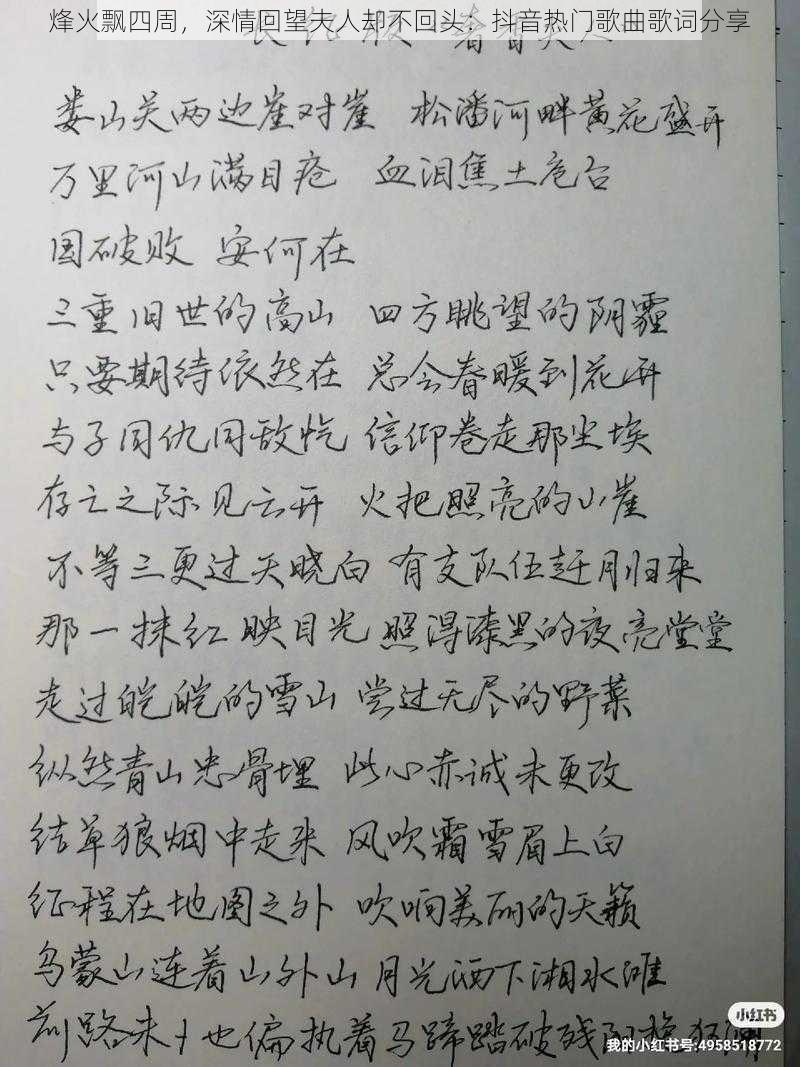 烽火飘四周，深情回望夫人却不回头：抖音热门歌曲歌词分享
娄山关两边崖对崖 松潘河畔黄花盛开
万里河山满目疮 血泪焦土危台
国破败 安何在
三重旧世的高山 四方眺望的阴霾
只要期待依然在 总会春暖到花开
与子同仇同敌忾 信仰卷走那尘埃
存亡之际见云开 火把照亮的山崖
不等三更过天晓白 有支队伍赶月归来
那一抹红映目光 照得漆黑的夜亮堂堂
走过皑皑的雪山 尝过无尽的野菜
纵然青山忠骨埋 此心赤诚未更改
结草狼烟中走来 风吹霜雪眉上白
征程在地图之外 吹响美丽的天籁
乌蒙山连着山外山 月光洒下湘水滩
前路未卜也偏执着马蹄踏破残阳
小红书
我的小红书号:4958518772